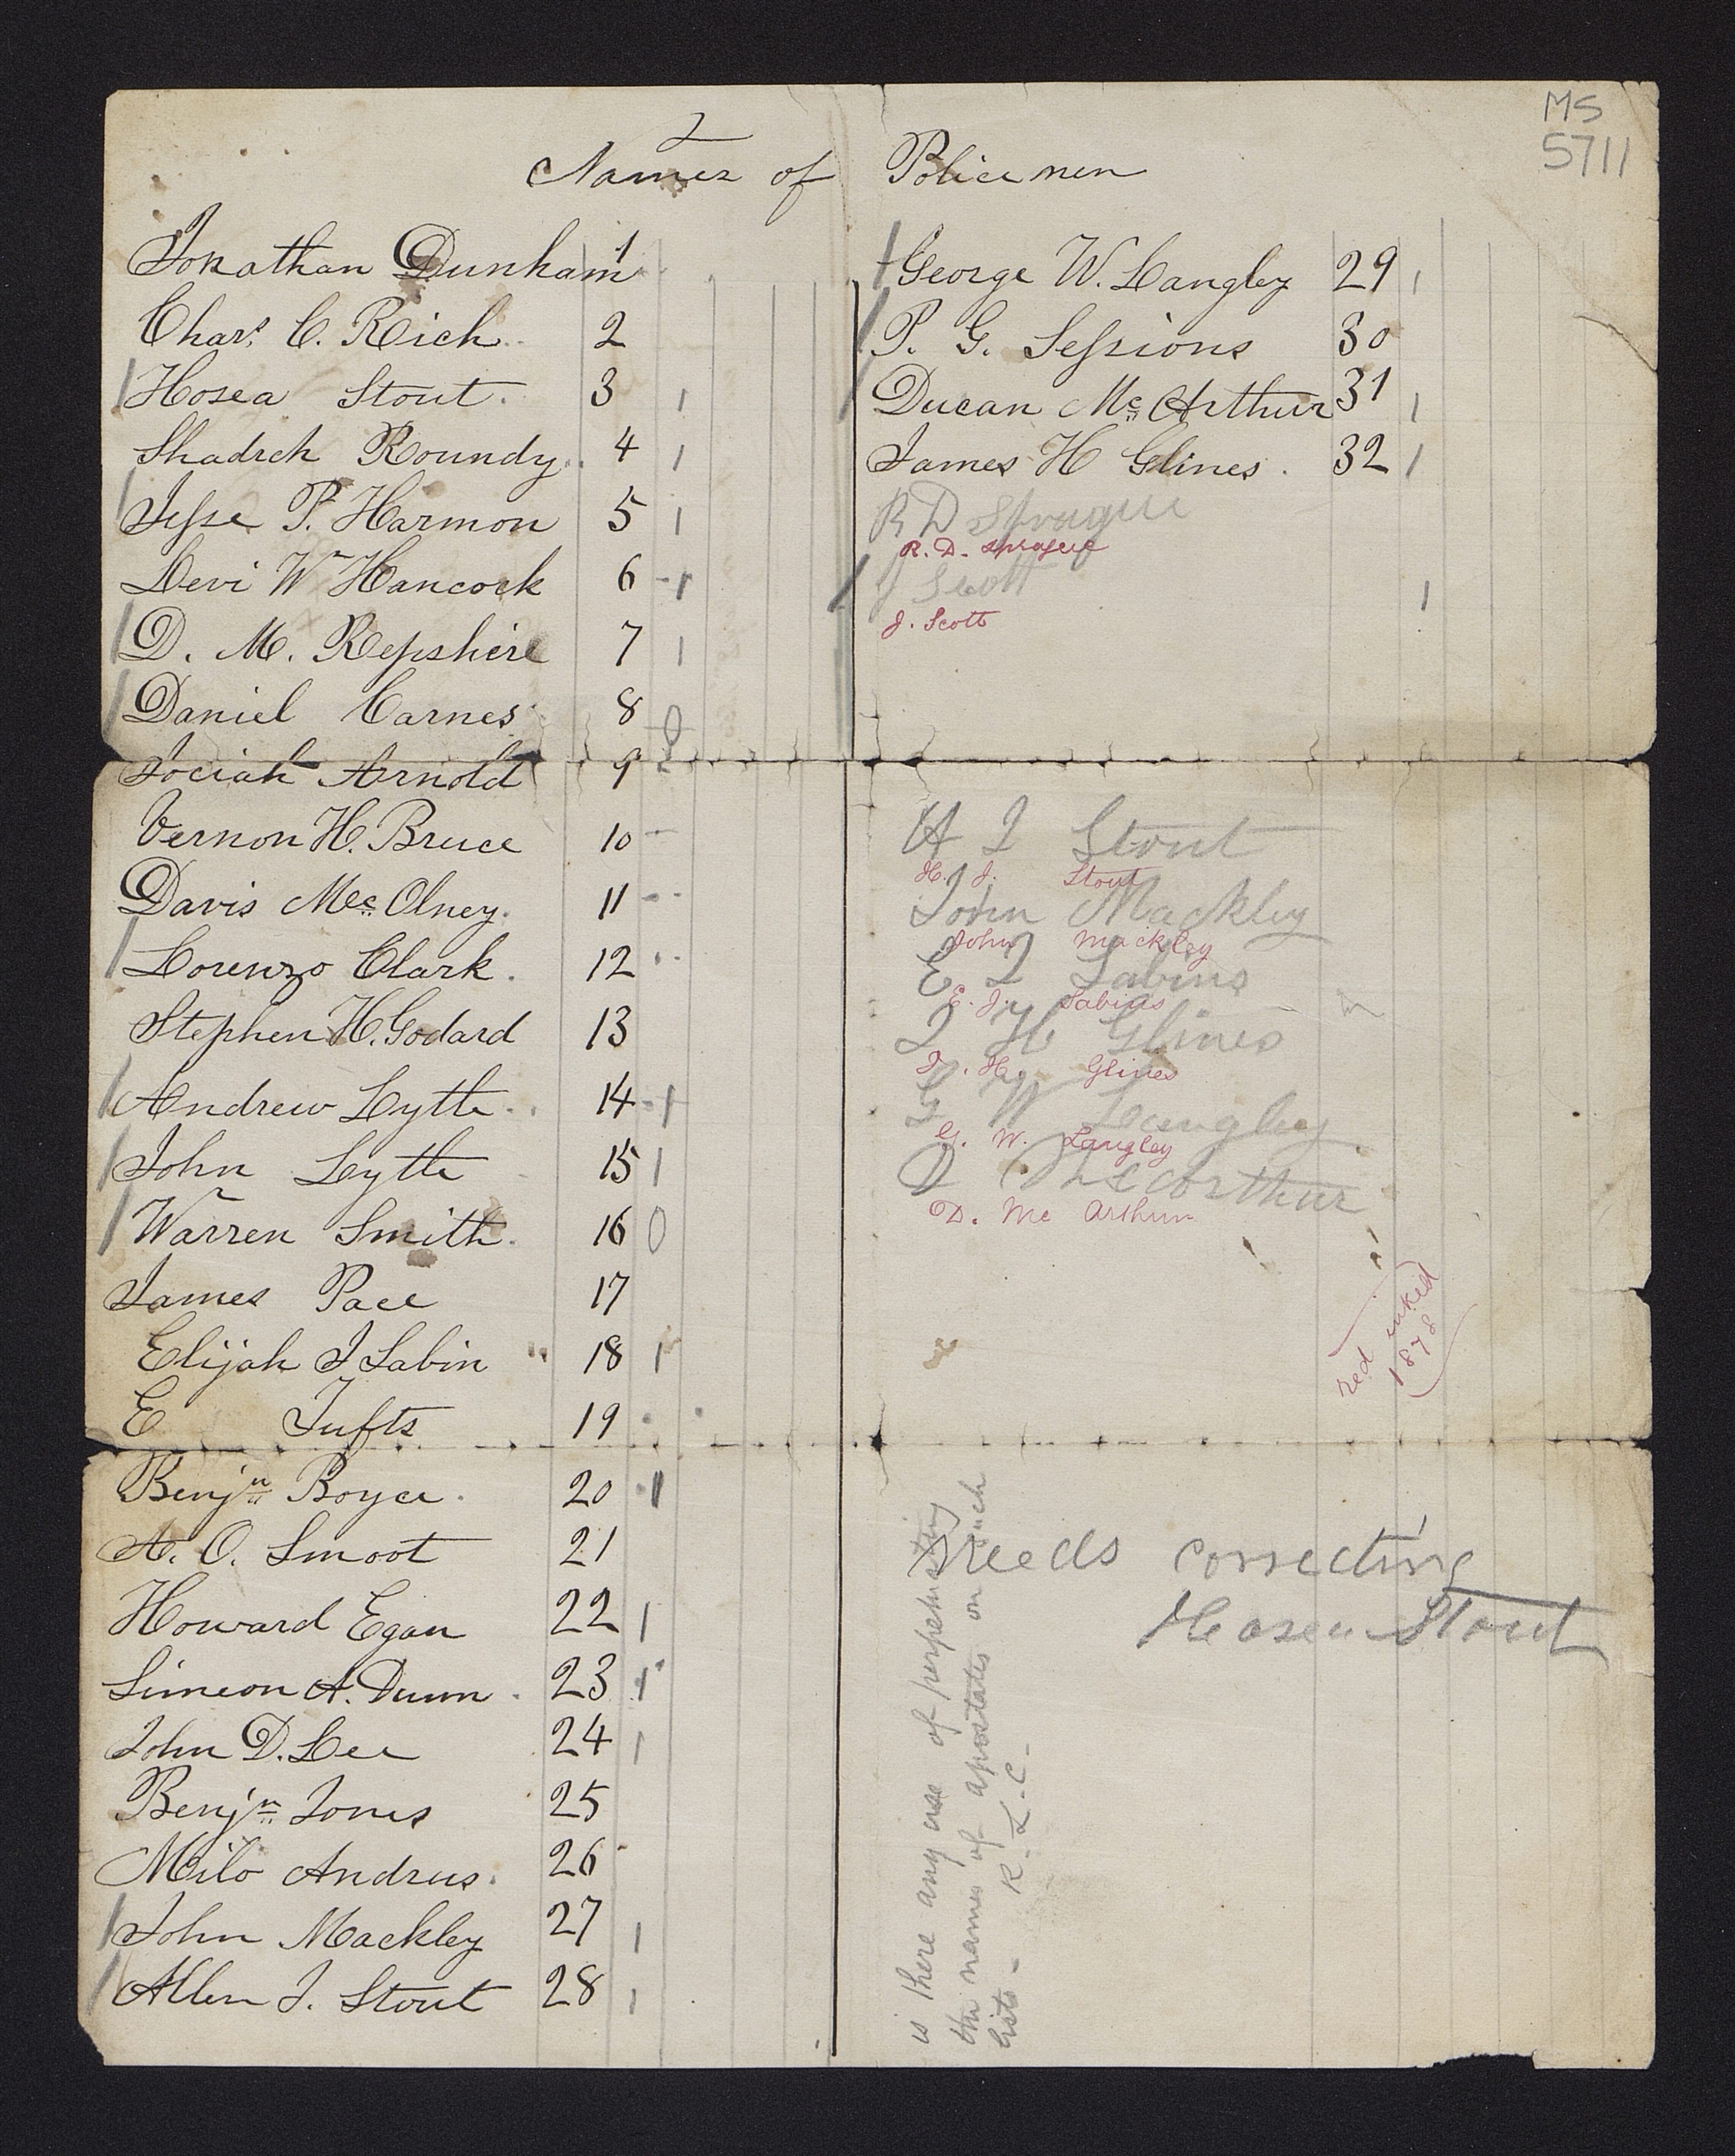 MS
5711
2
Names of Policemen
Jonathan Dunham 1
Chars. C. Rich 2
Hosea Stout. 3
Shadrch Roundy. 4
Jesse P. Harmon 5
Levi W Hancock 6
D. M. Repshire 7
Daniel Carnes 8
Josiah Arnold 9
Vernon H. Bruce 10
Davis Mc Olney. 11
Lorenzo Clark. 12
Stephen H. Godard 13
Andrew Lytle. 14
John Lytle 15
Warren Smith. 16 0
James Pace 17
Elijah J Sabin 18
E Tufts 19
Benjn Boyce. 20
A. O. Smoot 21
Howard Egan 22
Simeon A. Dunn. 23
John D. Lee 24
Benjn Jones 25
Milo Andrus. 26
John Mackley 27
Allen J. Stout 28
George W. Langley 29
P. G. Sessions 30
Ducan Mc Arthur 31
James H Glines. 32
R D Sprague
R. D. Sprague
J Scott
J. Scott
H J Stout
H. J. Stout
John Mackley
John Mackley
E J Sabins
E. J. Sabins
J H Glines
J. H. Glines
G W Langley
G. W. Langley
D McArthur
D. Mc Arthur
red inked
1878
needs correcting
Hosea Stout
is there any use of perpetuating
the names of apostates on such
lists -
R. L. C.